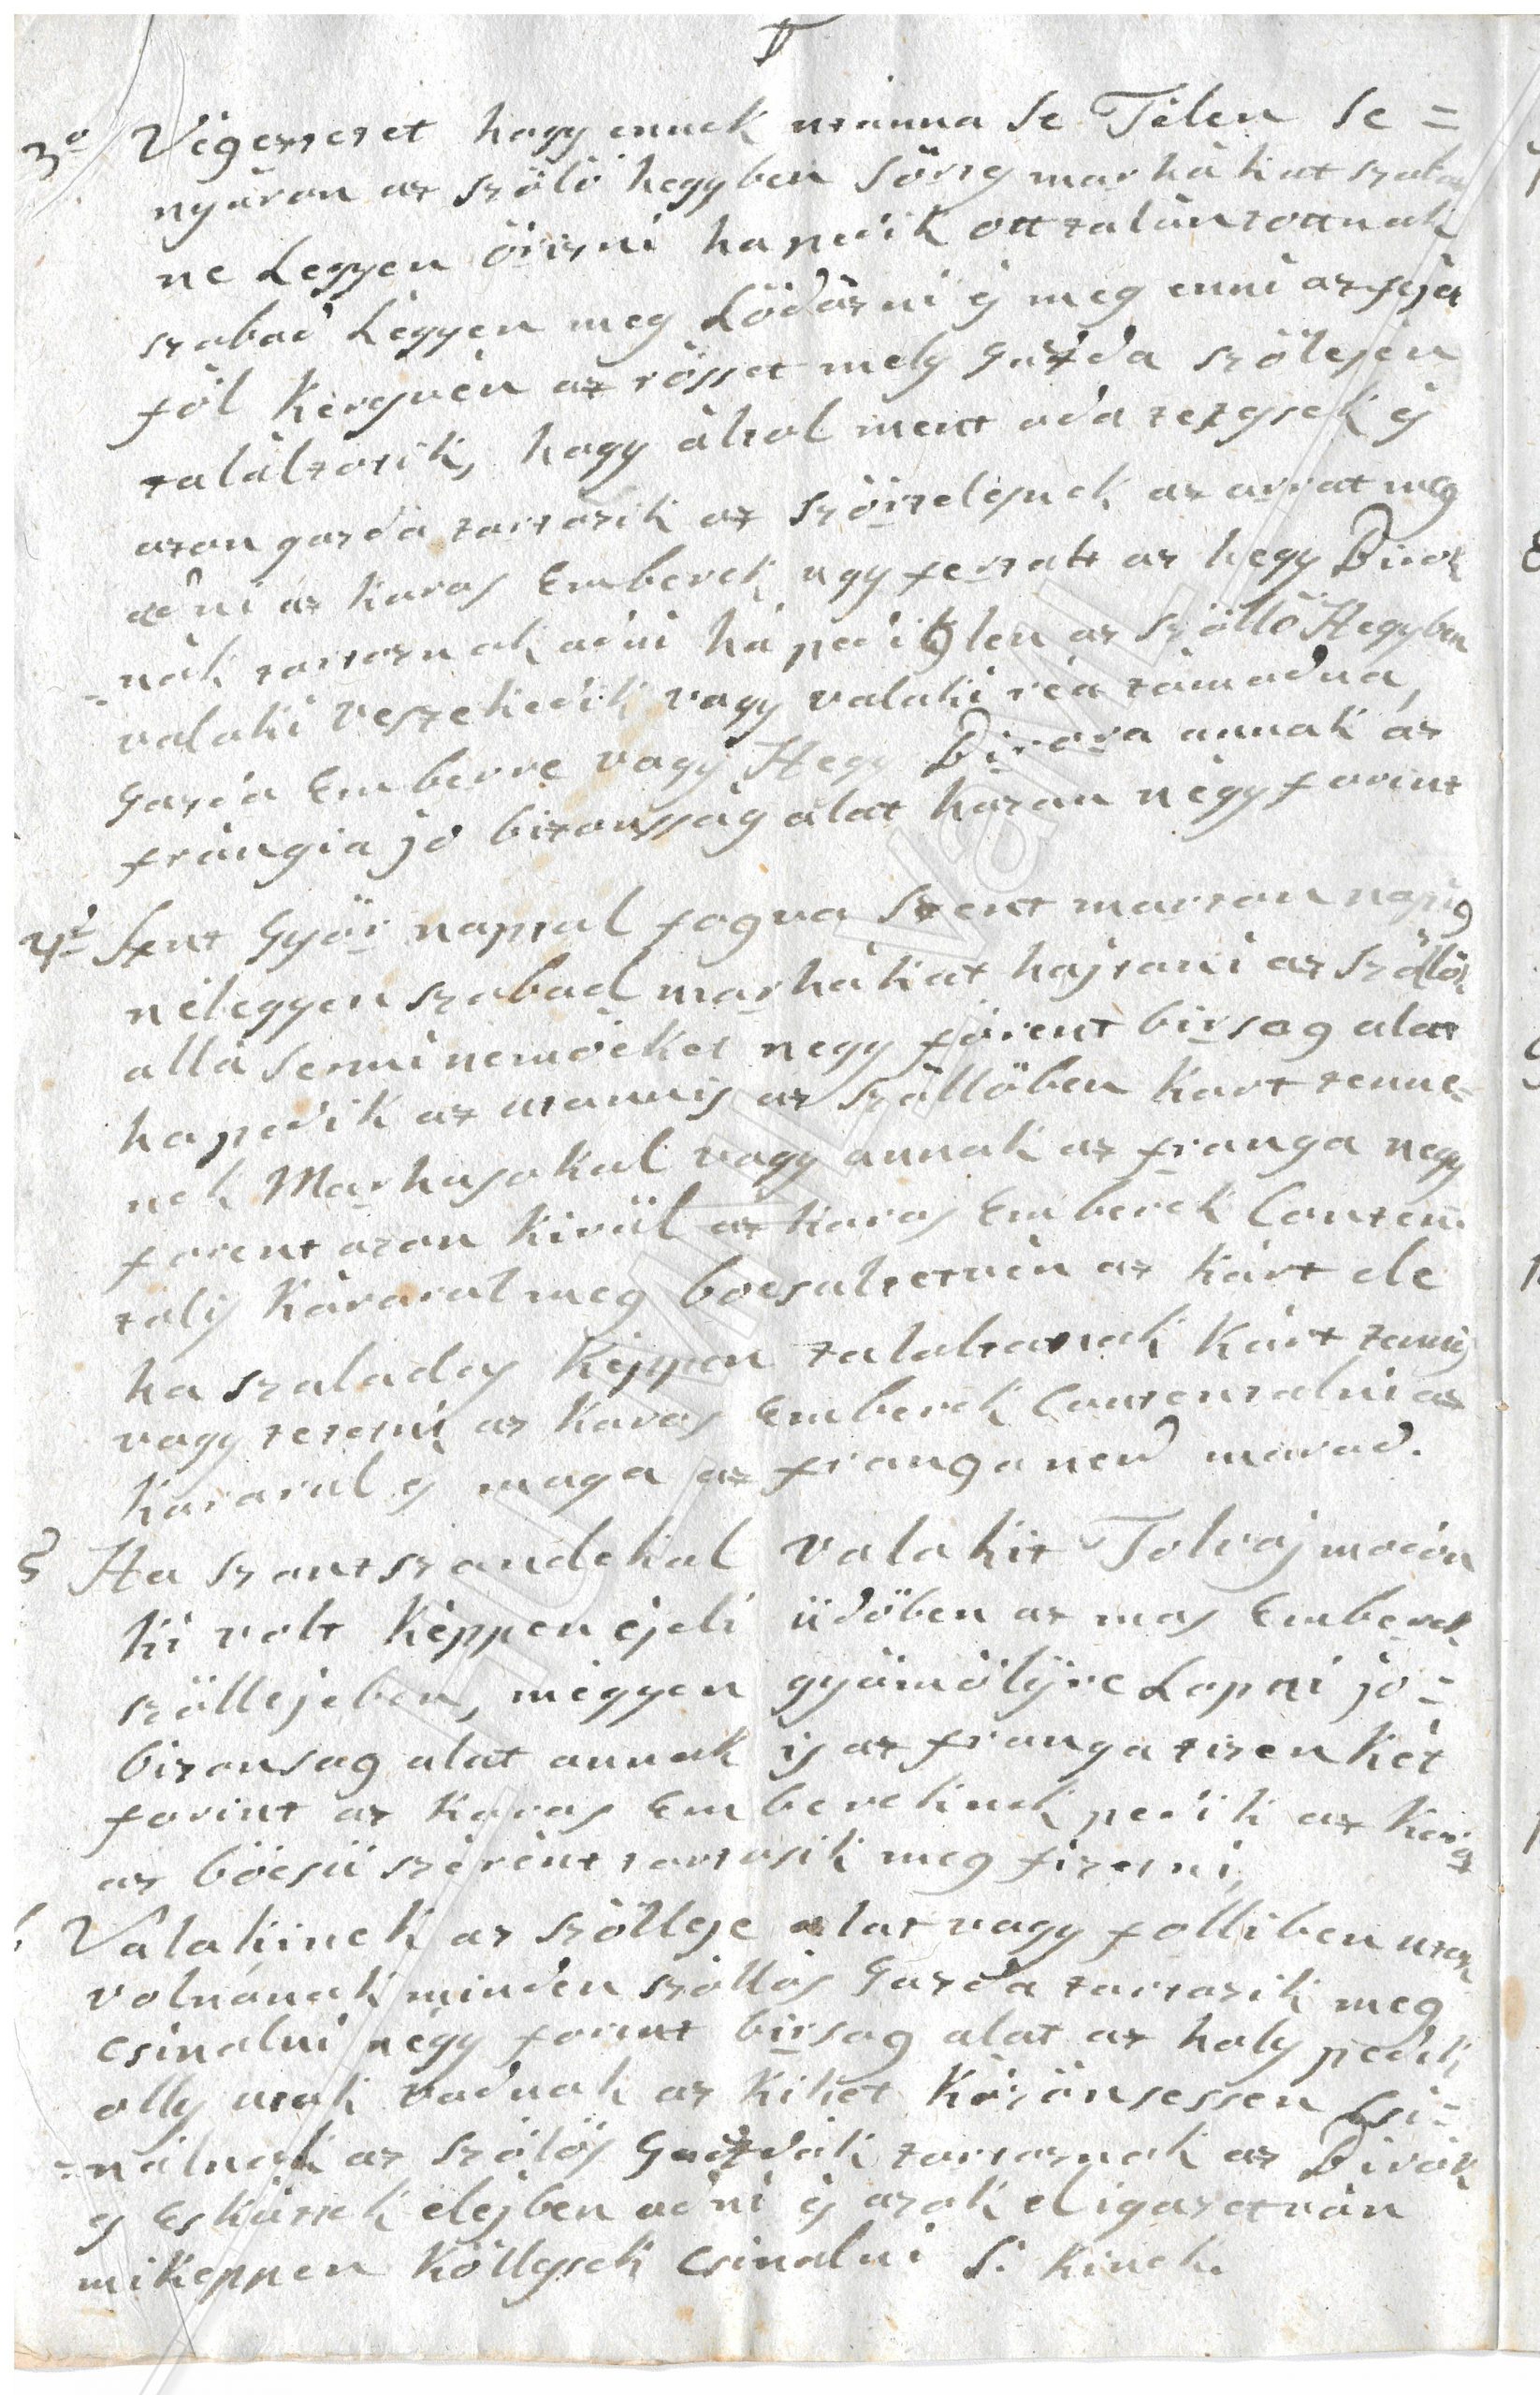 3o Vegezteret hogy ennek utánna se Télen se =
nyáron az szőlő hegyben Sörtg marhákat szaba
ne Legyen őrizni ha pedik ott talántottnak
szabad Légyen meg Lődözni és meg enni az feja
föl kergvén az rösset mely gazda szölején
talaltotik, hogy áltol ment oda tezgsek és
azon gazda tartozik az Szöitelésnek az arrat meg
adni az karos Emberek ugy fertalt az hegy Birok
-nák tartoznak adni ha pediglen az Szöllő Hegyben
valaki veszekedik vagy valaki réa támadna,
gazda Emberre vagy Hegy Birora annak az
frángia jó bizonsság alat hozan négy forint
4o Szent Györ naptal fogva Szent marton napig
nélegyen szabad marhákat hajtani az Szöllök
alla seminemöeket negy forent birsag alat
ha pedik az utannis az szöllöben kart tenne-
nek Marhasokal vagy annak az franga negy
forent azon kivül az karos Emberek Conten
talis kárával meg bocsaltetvén az kárt de
ha szalados képpen talaltatnak kárt tenni
vagy tetetni az karos Emberek Contentalni az
kararul és maga az franga nevd marad.
5 Ha szantszandekal valakit Tolvaj modon
ki volt képpen éjeli üdöben az mas Emberek
szöllejeben, mégyen gyömölijre Lopni jó-
bizonsag alat annak is az franga tizen két
forint az karos Emberekinek pedik az karig
az böcsü szérént tartosik meg fizetni,
Valakinek az szöllege alat vagy folliben utak
volnának minden szöllös Gazda tartozik meg
csinalni négy forint birsag alat az holy pedik
olly utak vadnak az kiket közönsessen csi-
-nálnak az szölös Gazdák tartoznak az Birák
és Esküttek elejben adni és azok eligazetván
mikeppen köllessek csinalni S. kinek.